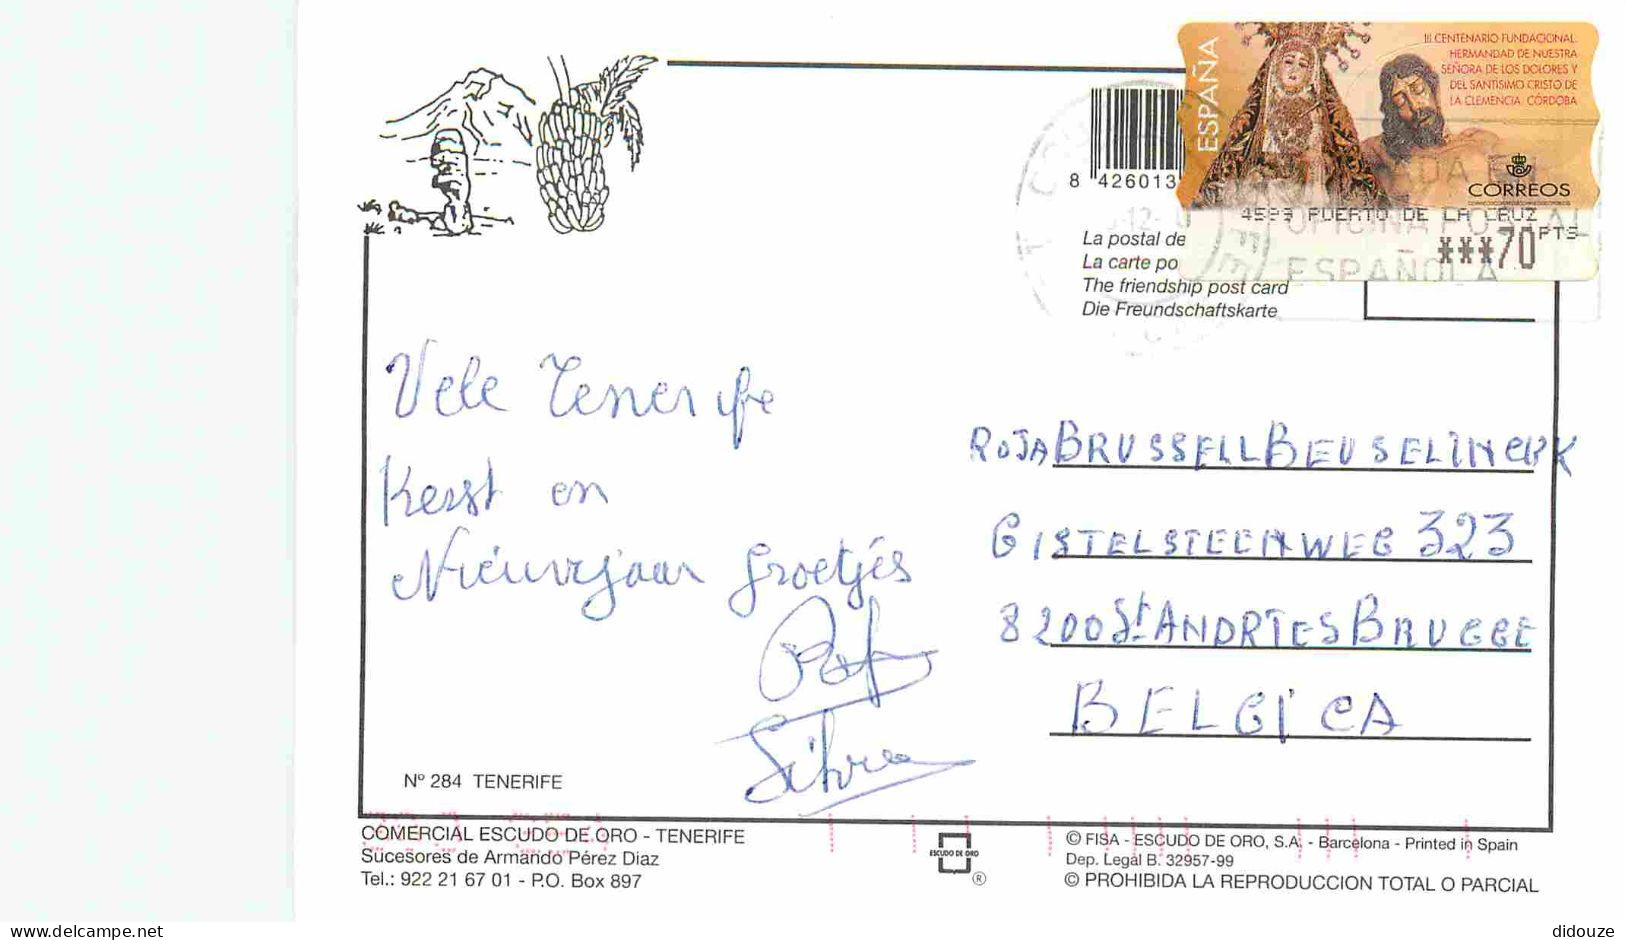 ESPAÑA
III CENTENARIO FUNDACIONAL
HERMANDAD DE NUESTRA
SEÑORA DE LOS DOLORES Y
DEL SANTISIMO CRISTO DE
LA CLEMENCIA. CÓRDOBA
CORREOS
4599 PUERTO DE LA CRUZ
***70 PTS
OFICINA POSTAL
ESPAÑOLA
8 426013
La postal de
La carte po
The friendship post card
Die Freundschaftskarte
Vele Tenerife
Kerst en
Nieuwjaar Groetjes
Silvia
ROJA BRUSSELL BEUSELINCK
GISTELSTEENWEG 323
8200 St ANDRIES BRUGGE
BELGICA
Nº 284 TENERIFE
COMERCIAL ESCUDO DE ORO - TENERIFE
Sucesores de Armando Pérez Diaz
Tel.: 922 21 67 01 - P.O. Box 897
ESCUDO DE ORO
®
© FISA - ESCUDO DE ORO, S.A. - Barcelona - Printed in Spain
Dep. Legal B. 32957-99
© PROHIBIDA LA REPRODUCCION TOTAL O PARCIAL
delcampe.net
didouze